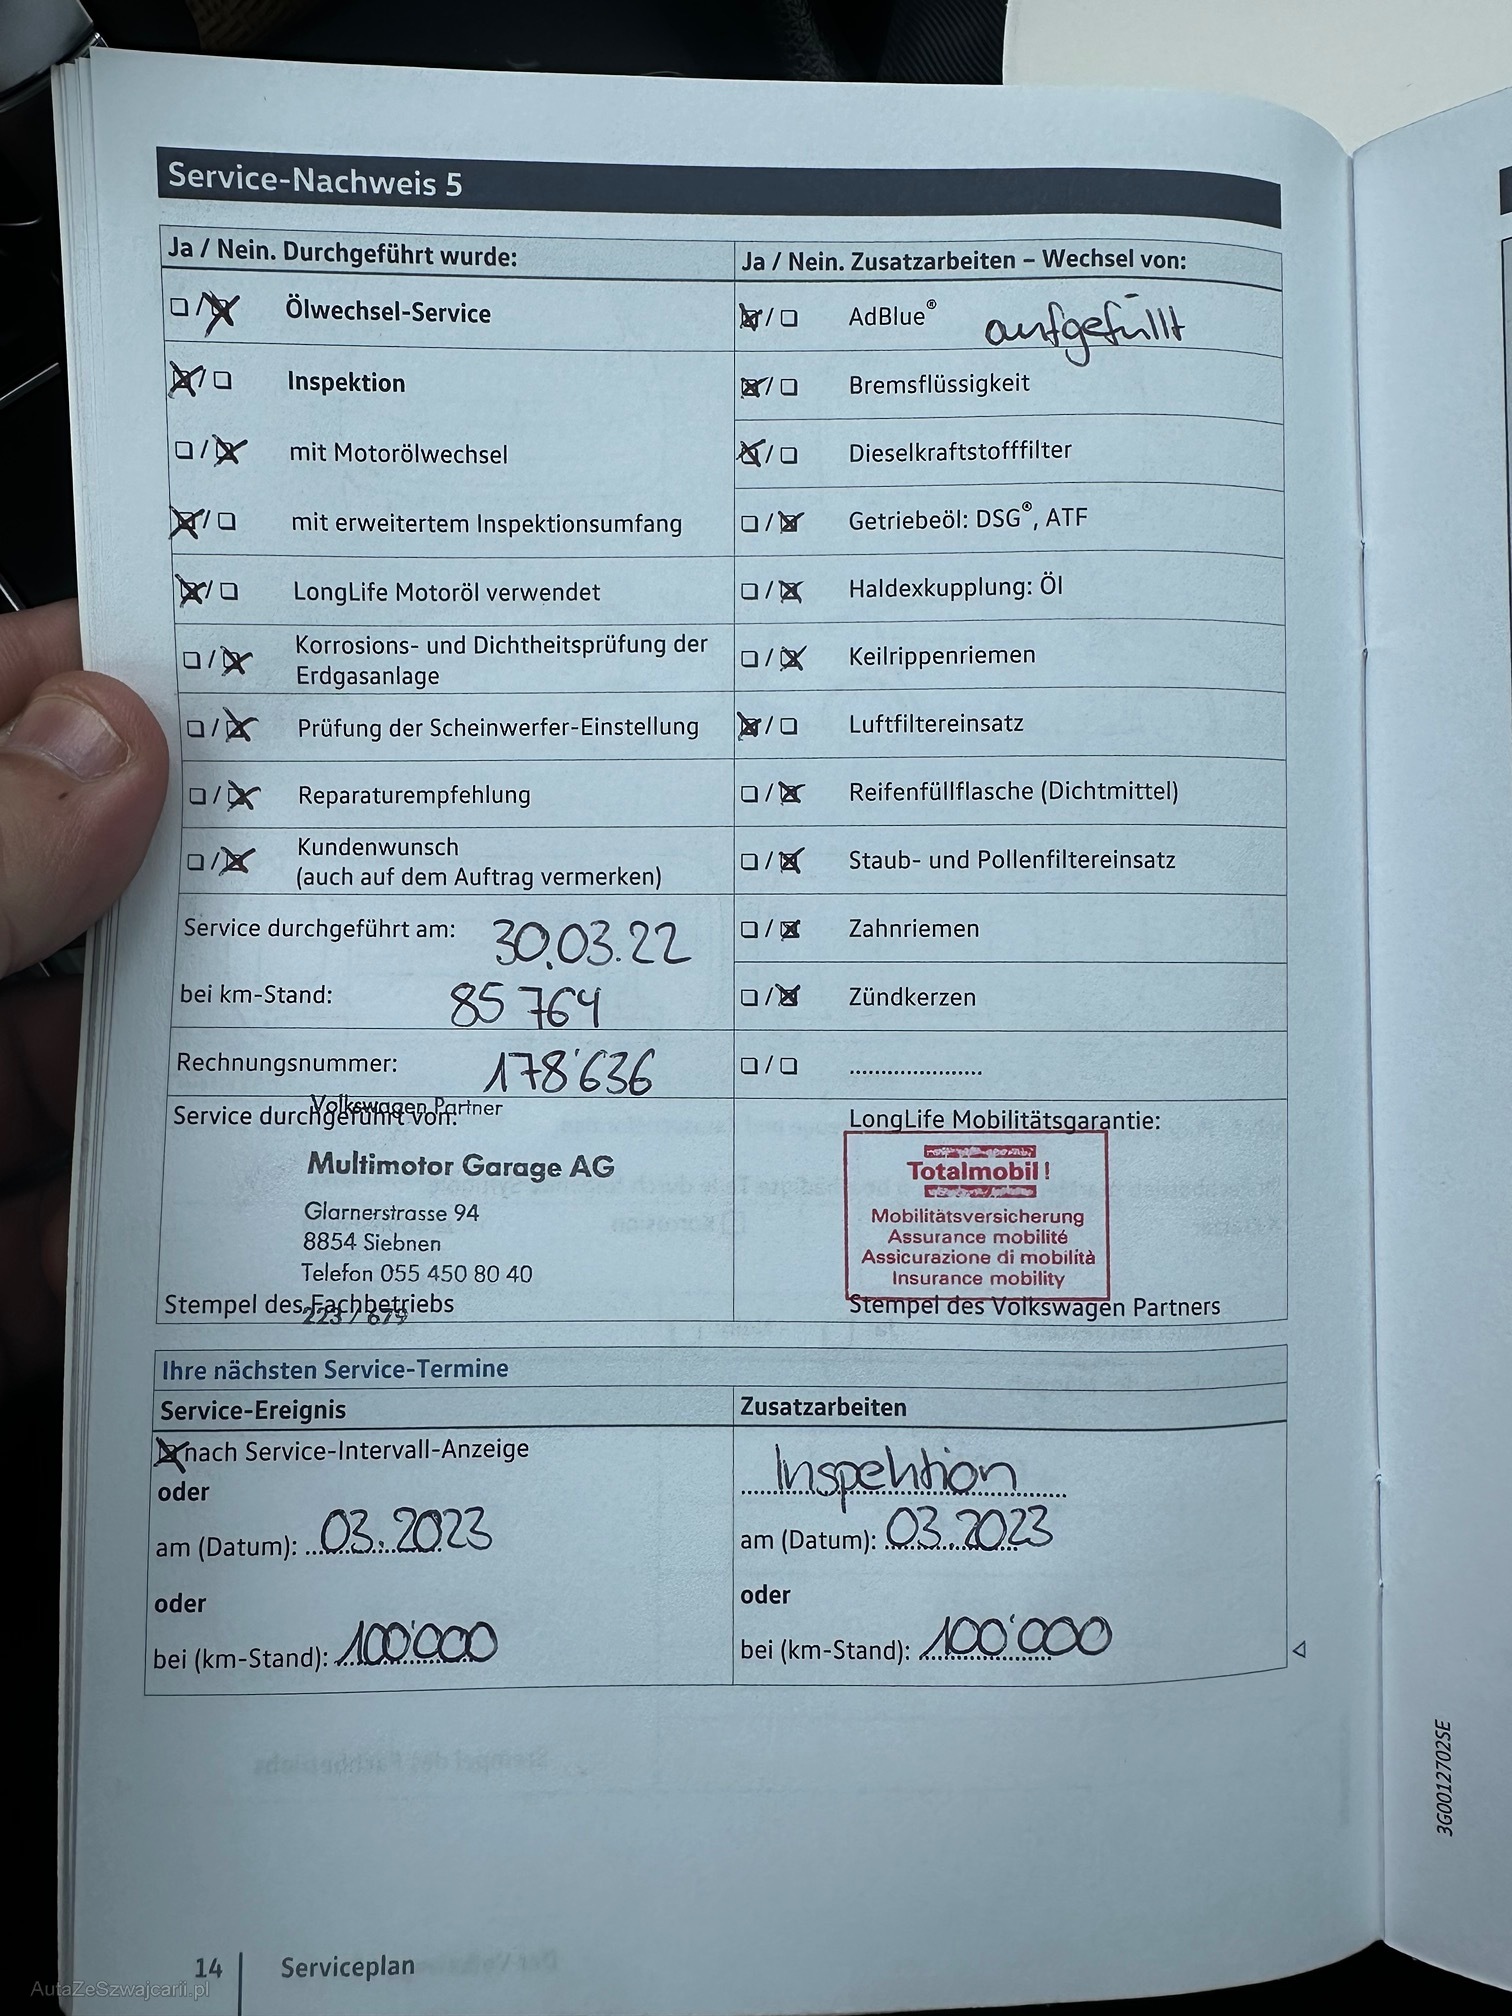 Service-Nachweis 5
Ja / Nein. Durchgeführt wurde:
☐ / ☒ Ölwechsel-Service
☒ / ☐ Inspektion
☐ / ☒ mit Motorölwechsel
☒ / ☐ mit erweitertem Inspektionsumfang
☒ / ☐ LongLife Motoröl verwendet
☐ / ☒ Korrosions- und Dichtheitsprüfung der
Erdgasanlage
☐ / ☒ Prüfung der Scheinwerfer-Einstellung
☐ / ☒ Reparaturempfehlung
☐ / ☒ Kundenwunsch
(auch auf dem Auftrag vermerken)
Service durchgeführt am: 30.03.22
bei km-Stand: 85 764
Rechnungsnummer: 178'636
Service durchgeführt von:
Volkswagen Partner
Multimotor Garage AG
Glarnerstrasse 94
8854 Siebnen
Telefon 055 450 80 40
223 / 679
Stempel des Fachbetriebs
Ja / Nein. Zusatzarbeiten – Wechsel von:
☒ / ☐ AdBlue® aufgefüllt
☒ / ☐ Bremsflüssigkeit
☒ / ☐ Dieselkraftstofffilter
☐ / ☒ Getriebeöl: DSG®, ATF
☐ / ☒ Haldexkupplung: Öl
☐ / ☒ Keilrippenriemen
☒ / ☐ Luftfiltereinsatz
☐ / ☒ Reifenfüllflasche (Dichtmittel)
☐ / ☒ Staub- und Pollenfiltereinsatz
☐ / ☒ Zahnriemen
☐ / ☒ Zündkerzen
☐ / ☐ ......................
LongLife Mobilitätsgarantie:
Totalmobil!
Mobilitätsversicherung
Assurance mobilité
Assicurazione di mobilità
Insurance mobility
Stempel des Volkswagen Partners
Ihre nächsten Service-Termine
Service-Ereignis
☒ nach Service-Intervall-Anzeige
oder
am (Datum): 03.2023
oder
bei (km-Stand): 100'000
Zusatzarbeiten
Inspektion
am (Datum): 03.2023
oder
bei (km-Stand): 100'000
3G0012702SE
14 Serviceplan
AutaZeSzwajcarii.pl